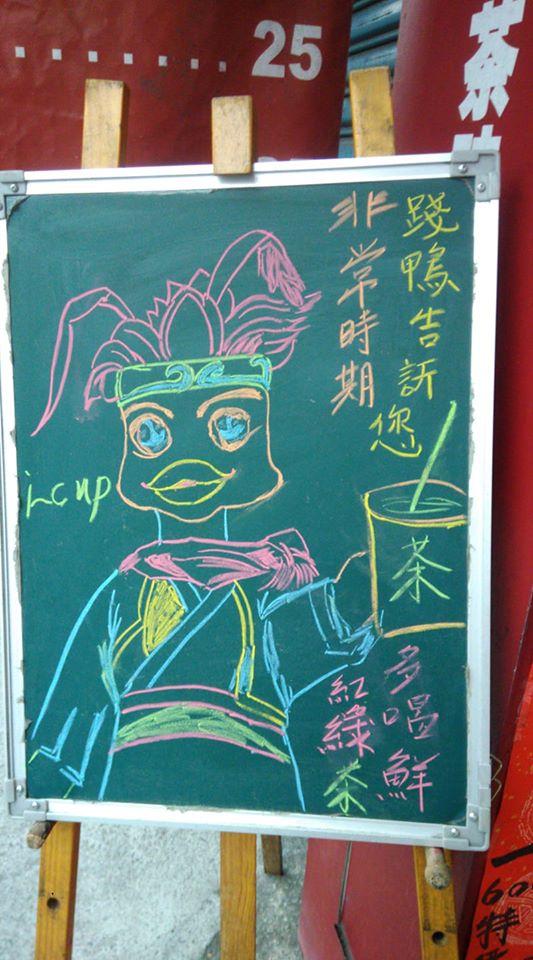 25
茶
踐鴨告訴您
非常時期
多喝鮮
紅綠茶
茶
i-cup
60
特